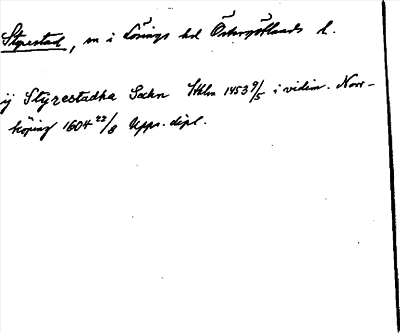 Styrestad, sn i Lösings hd Östergötlands l.
ij Styrestadha Sockn Sthlm 1453 9/5 i vidim. Norr-
köping 1604 22/8 Upps. dipl.